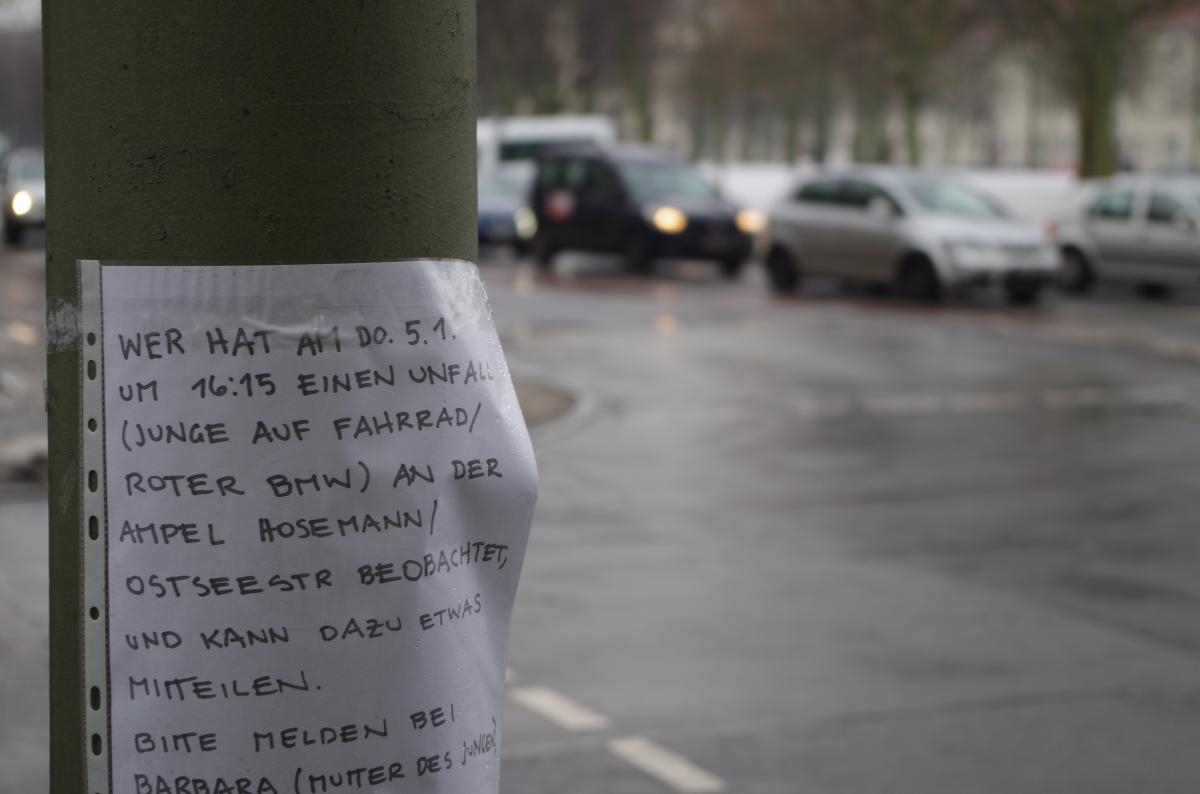 WER HAT AM DO. 5.1.
UM 16:15 EINEN UNFALL
(JUNGE AUF FAHRRAD/
ROTER BMW) AN DER
AMPEL HOSEMANN/
OSTSEESTR BEOBACHTET,
UND KANN DAZU ETWAS
MITTEILEN.
BITTE MELDEN BEI
BARBARA (MUTTER DES JUNGEN)